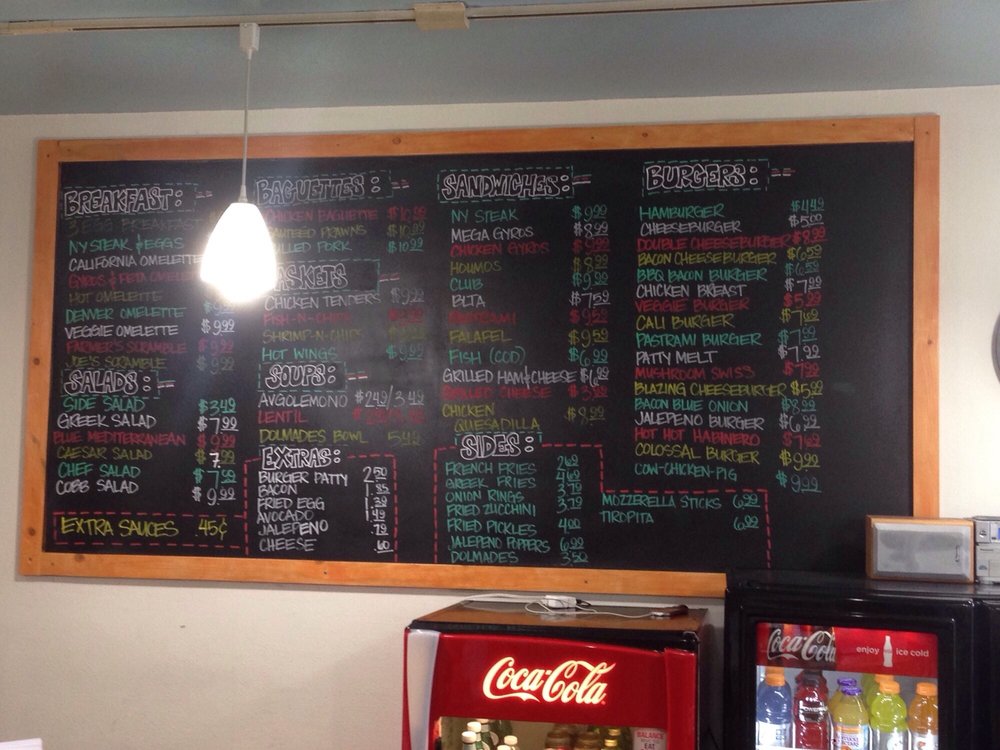 BREAKFAST:
3 EGG BREAKFAST
NY STEAK & EGGS
CALIFORNIA OMELETTE
GYROS & FETA OMELETTE
HOT OMELETTE
DENVER OMELETTE
VEGGIE OMELETTE $9.99
FARMER'S SCRAMBLE
JOE'S SCRAMBLE
SALADS:
SIDE SALAD $3.49
GREEK SALAD $7.99
BLUE MEDITERRANEAN $9.99
CAESAR SALAD 7.99
CHEF SALAD $7.50
COBB SALAD $9.99
EXTRA SAUCES .45¢
BAGUETTES:
CHICKEN BAGUETTE $10.99
SAUTEED PRAWNS $10.99
PULLED PORK $10.99
BASKETS
CHICKEN TENDERS $9.99
FISH-N-CHIPS
SHRIMP-N-CHIPS
HOT WINGS $9.99
SOUPS:
AVGOLEMONO $2.49/3.49
LENTIL
DOLMADES BOWL 5.49
EXTRAS:
BURGER PATTY 2.50
BACON
FRIED EGG
AVOCADO 1.49
JALEPENO .79
CHEESE .60
SANDWICHES:
NY STEAK $9.99
MEGA GYROS $8.99
CHICKEN GYROS $9.99
HOUMOS
CLUB $9.99
BLTA $7.59
PASTRAMI
FALAFEL $9.59
FISH (COD) $6.99
GRILLED HAM & CHEESE $6.99
GRILLED CHEESE
CHICKEN
QUESADILLA $8.99
SIDES:
FRENCH FRIES 2.69
GREEK FRIES 4.69
ONION RINGS 3.79
FRIED ZUCCHINI 3.79
FRIED PICKLES 4.00
JALEPENO POPPERS 6.99
DOLMADES 3.50
MOZZERELLA STICKS 6.99
TIROPITA 6.99
BURGERS:
HAMBURGER $4.49
CHEESEBURGER $5.00
DOUBLE CHEESEBURGER $8.99
BACON CHEESEBURGER $6.59
BBQ BACON BURGER $6.59
CHICKEN BREAST $7.99
VEGGIE BURGER
CALI BURGER $7.69
PASTRAMI BURGER $7.99
PATTY MELT $7.99
MUSHROOM SWISS $7.99
BLAZING CHEESEBURGER $5.99
BACON BLUE ONION $8.99
JALEPENO BURGER $6.99
HOT HOT HABINERO $7.69
COLOSSAL BURGER $9.99
COW-CHICKEN-PIG $9.99
Coca-Cola
BALANCE
EAT
Coca-Cola
enjoy ice cold